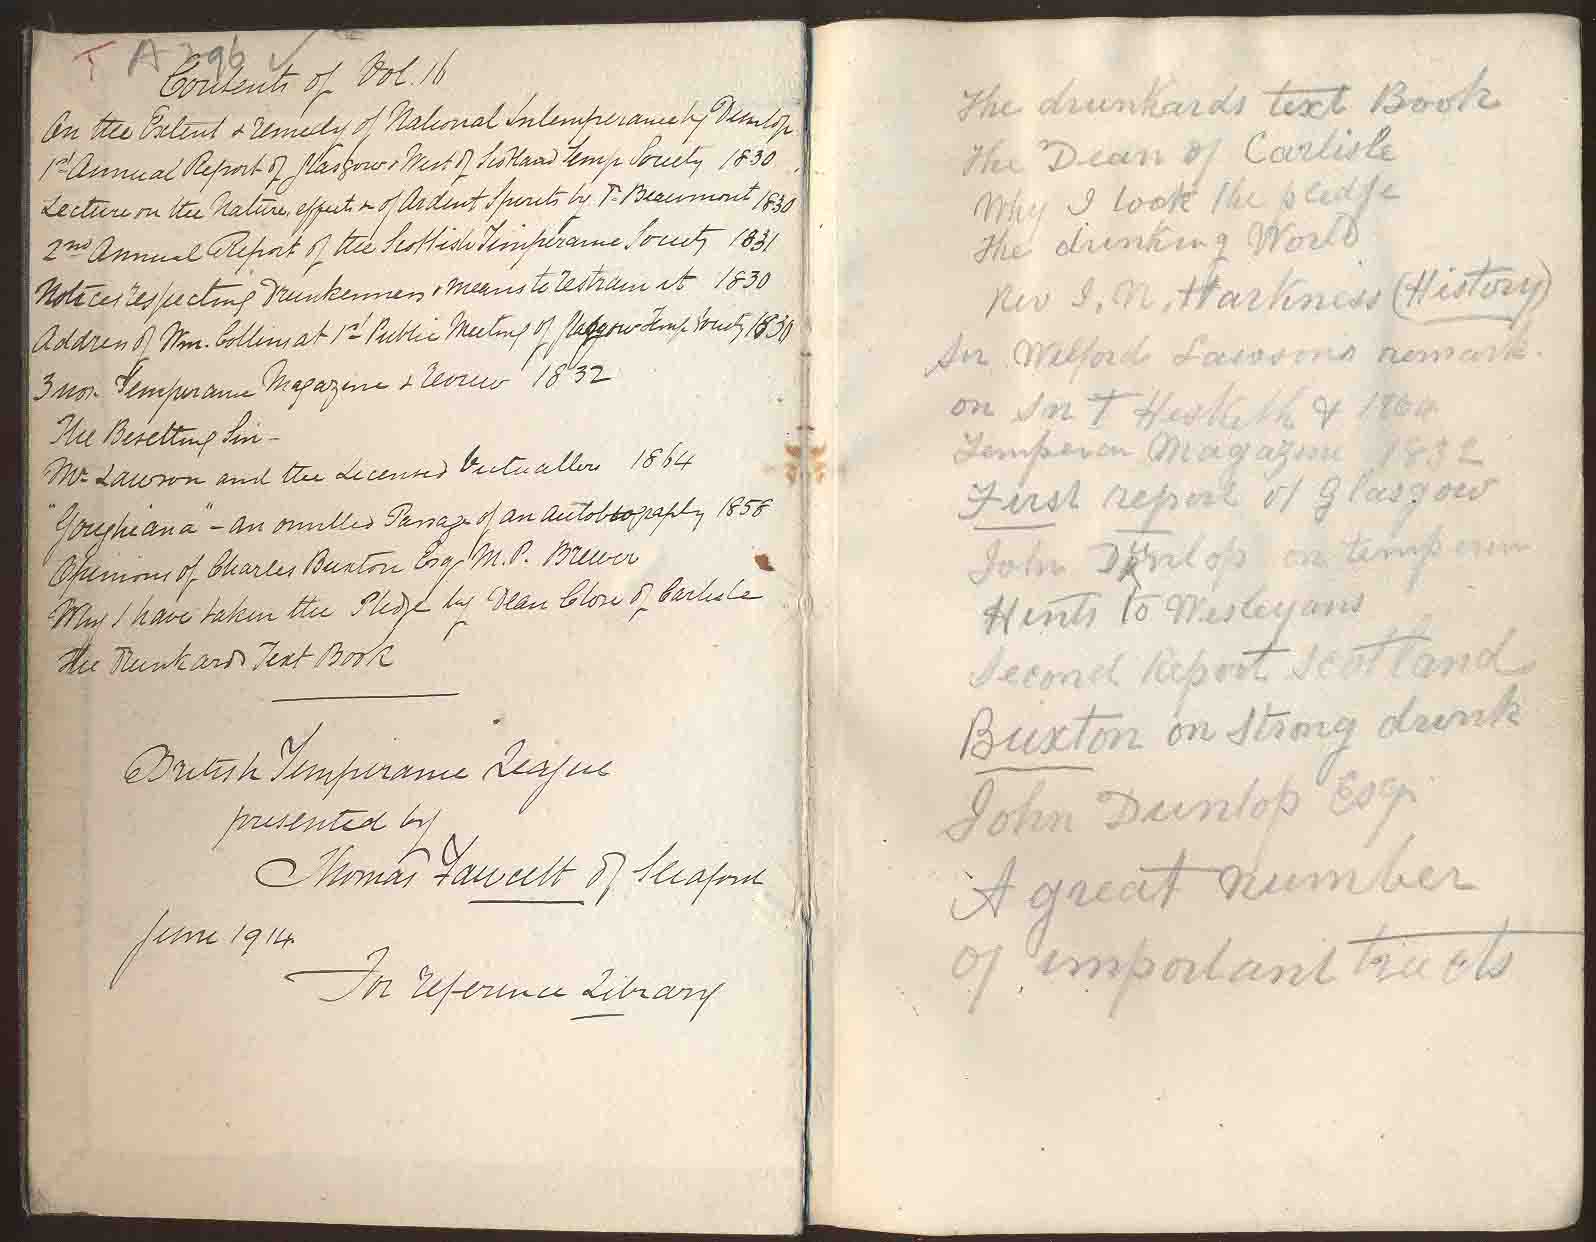 T A 296 ✓
Contents of Vol. 16
On the Extent & remedy of National Intemperance by Dunlop
1st Annual Report of Glasgow & West of Scotland Temp Society 1830
Lecture on the Nature, effects & of Ardent Spirits by T. Beaumont 1830
2nd Annual Report of the Scottish Temperance Society 1831
Notices respecting Drunkenness & means to restrain it 1830
Address of Wm. Collins at 1st Public Meeting of Glasgow Temp Society 1830
3 nos. Temperance Magazine & Review 1832
The Besetting Sin -
Mr Lawson and the Licensed Victuallers 1864
"Goughiana" - an omitted Passage of an autobiography 1858
Opinions of Charles Buxton Esq M.P. Brewer
Why I have taken the Pledge by Dean Close of Carlisle
The Drunkards Text Book
British Temperance League
presented by
Thomas Fawcett of Sleaford
June 1914
For reference Library
The drunkards text Book
the Dean of Carlisle
Why I took the pledge
the drinking World
Rev I. N. Harkness (History)
Sir Wilford Lawsons remark.
on Sir T Hesketh & 1864
Temperan Magazine 1832
First report of Glasgow
John Dunlop on temperan
Hints to Wesleyans
Second Report Scotland
Buxton on Strong drink
John Dunlop Esq
A great number
of important tracts